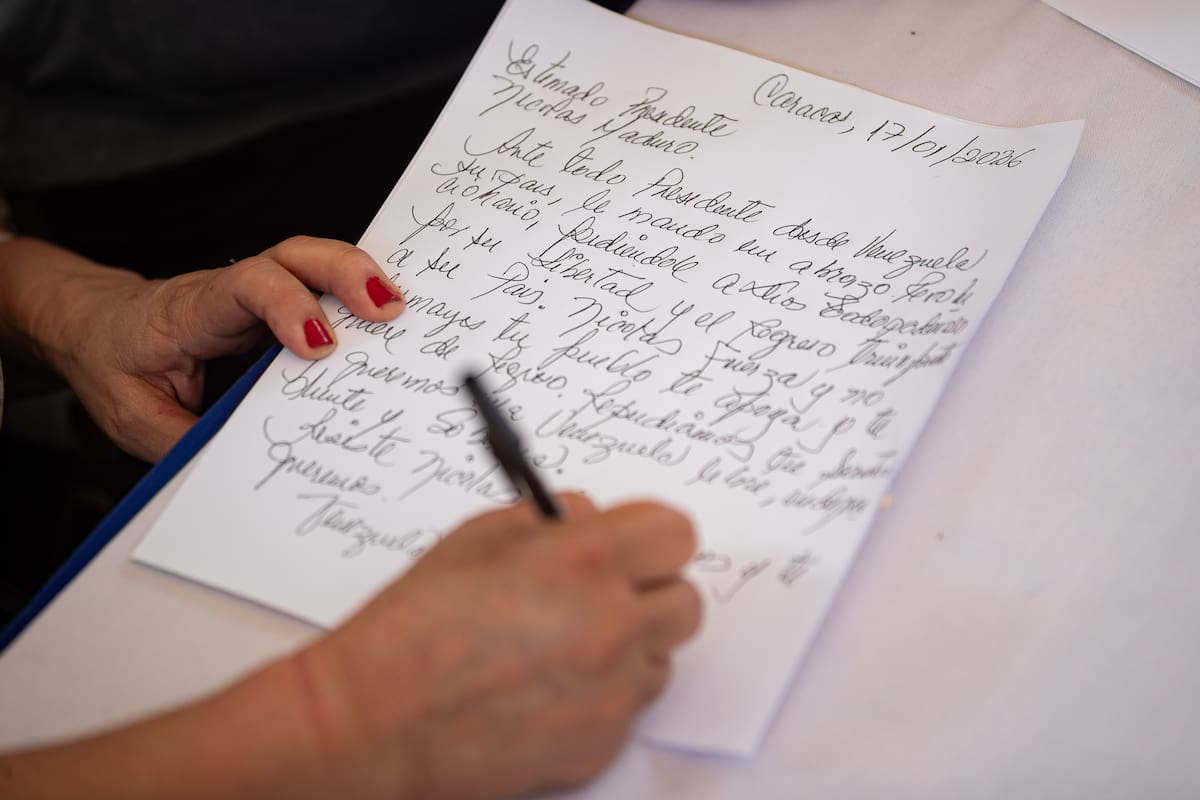 Caracas, 17/01/2026
Estimado Presidente
Nicolas Maduro.
Ante todo Presidente desde Venezuela
su pais, le mando un abrazo.
cionario, pidiendole a Dios
por su libertad y el regreso triunfante
a su Pais. Nicolas Fuerza y no
tu pueblo te apoya y te
quiere de regreso.
queremos una Venezuela libre,
Nicolas
queremos.
y te
Venezuela